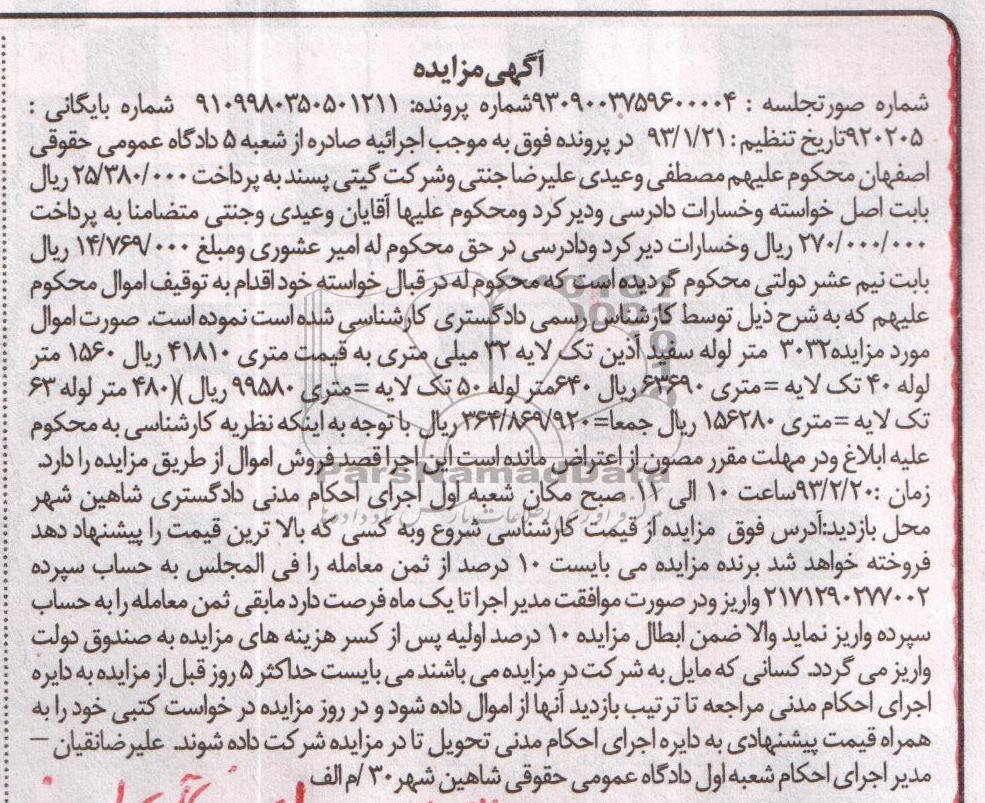 آگهی مزایده
شماره صورتجلسه : ۹۳۰۹۰۰۳۷۵۹۶۰۰۰۰۴شماره پرونده: ۹۱۰۹۹۸۰۳۵۰۵۰۱۲۱۱ شماره بایگانی :
۹۲۰۲۰۵تاریخ تنظیم : ۹۳/۱/۲۱ در پرونده فوق به موجب اجرائیه صادره از شعبه ۵ دادگاه عمومی حقوقی
اصفهان محکوم علیهم مصطفی وعیدی علیرضا جنتی وشرکت گیتی پسند به پرداخت ۲۵/۳۸۰/۰۰۰ ریال
بابت اصل خواسته وخسارات دادرسی ودیرکرد ومحکوم علیها آقایان وعیدی وجنتی متضامنا به پرداخت
۲۷۰/۰۰۰/۰۰۰ ریال وخسارات دیرکرد ودادرسی در حق محکوم له امیر عشوری ومبلغ ۱۴/۷۶۹/۰۰۰ ریال
بابت نیم عشر دولتی محکوم گردیده است که محکوم له در قبال خواسته خود اقدام به توقیف اموال محکوم
علیهم که به شرح ذیل توسط کارشناس رسمی دادگستری کارشناسی شده است نموده است. صورت اموال
مورد مزایده۳۰۳۲ متر لوله سفید آذین تک لایه ۳۲ میلی متری به قیمت متری ۴۱۸۱۰ ریال ۱۵۶۰ متر
لوله ۴۰ تک لایه =متری ۶۳۶۹۰ ریال ۶۴۰متر لوله ۵۰ تک لایه =متری ۹۹۵۸۰ ریال )(۴۸۰ متر لوله ۶۳
تک لایه =متری ۱۵۶۲۸۰ ریال جمعا=۳۶۴/۸۶۹/۹۲۰ ریال با توجه به اینکه نظریه کارشناسی به محکوم
علیه ابلاغ ودر مهلت مقرر مصون از اعتراض مانده است این اجرا قصد فروش اموال از طریق مزایده را دارد.
زمان :۹۳/۲/۲۰ساعت ۱۰ الی ۱۱ صبح مکان شعبه اول اجرای احکام مدنی دادگستری شاهین شهر
محل بازدید:آدرس فوق مزایده از قیمت کارشناسی شروع وبه کسی که بالا ترین قیمت را پیشنهاد دهد
فروخته خواهد شد برنده مزایده می بایست ۱۰ درصد از ثمن معامله را فی المجلس به حساب سپرده
۲۱۷۱۲۹۰۲۷۷۰۰۲ واریز ودر صورت موافقت مدیر اجرا تا یک ماه فرصت دارد مابقی ثمن معامله را به حساب
سپرده واریز نماید والا ضمن ابطال مزایده ۱۰ درصد اولیه پس از کسر هزینه های مزایده به صندوق دولت
واریز می گردد. کسانی که مایل به شرکت در مزایده می باشند می بایست حداکثر ۵ روز قبل از مزایده به دایره
اجرای احکام مدنی مراجعه تا ترتیب بازدید آنها از اموال داده شود و در روز مزایده در خواست کتبی خود را به
همراه قیمت پیشنهادی به دایره اجرای احکام مدنی تحویل تا در مزایده شرکت داده شوند. علیرضانقیان –
مدیر اجرای احکام شعبه اول دادگاه عمومی حقوقی شاهین شهر ۳۰ /م الف
ParsNamadData